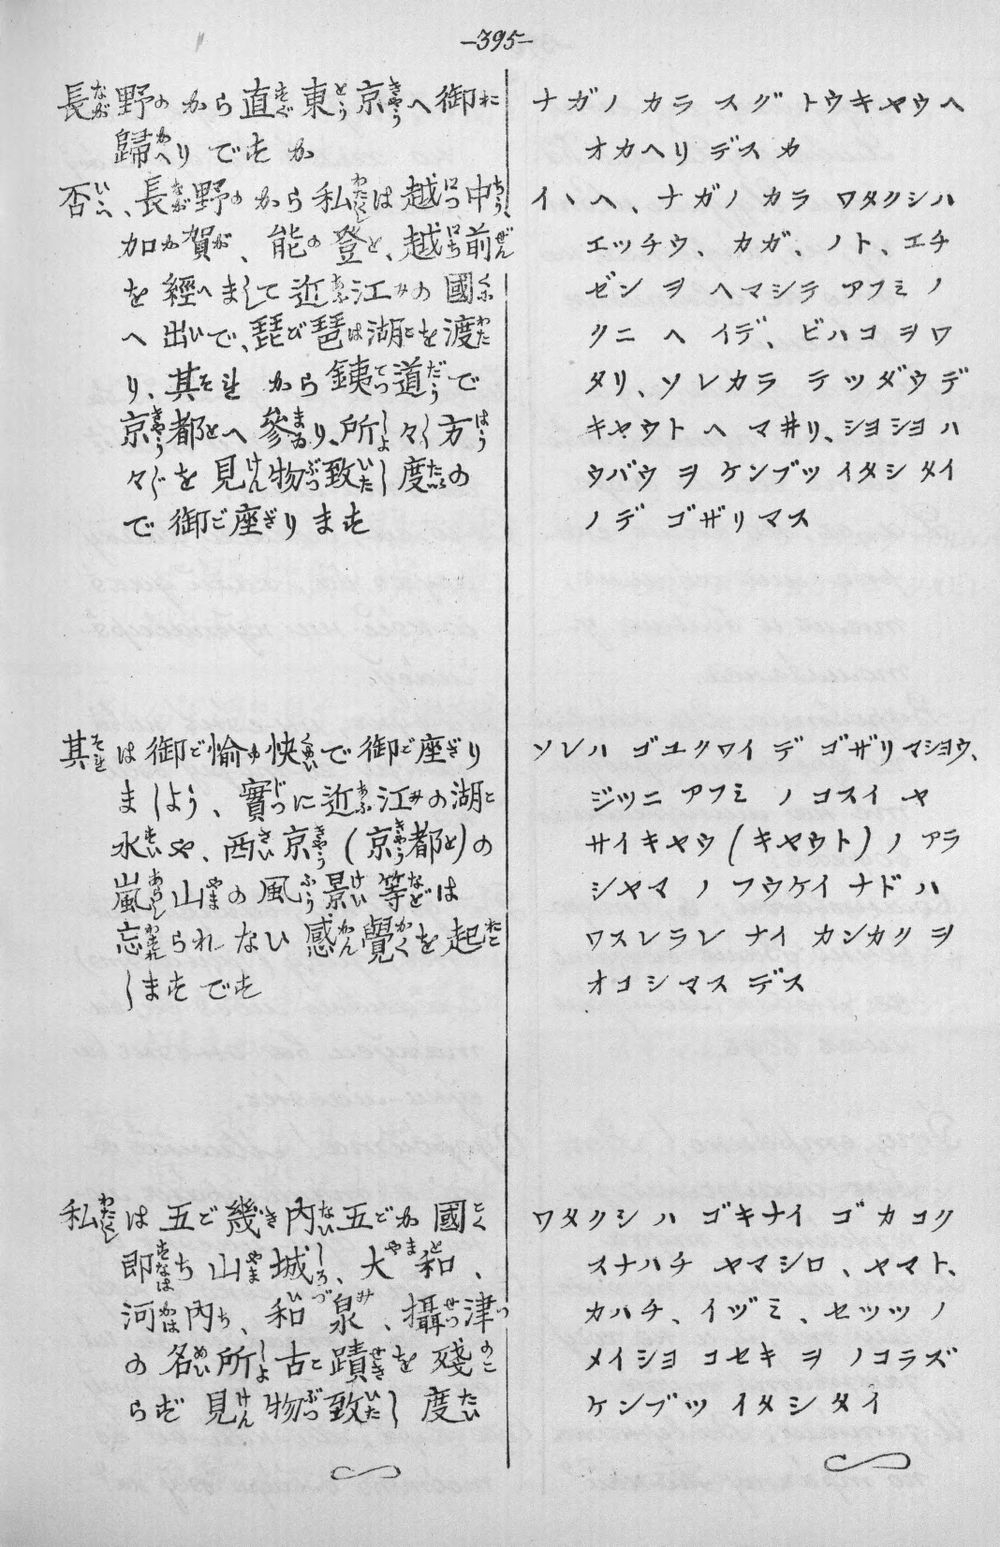 —395—
長野から直東京へ御
歸りですか
否、長野から私は越中、
加賀、能登、越前
を經まして近江の國
へ出で、琵琶湖を渡
り、其から銕道で
京都へ參り、所々方
々を見物致し度の
で御座ります
其は御愉快で御座り
ましよう、實に近江の湖
水や、西京(京都)の
嵐山の風景等は
忘られない感覺を起
しますです
私は五幾內五か國
即ち山城、大和、
河內、和泉、攝津
の名所古蹟を殘
らず見物致し度
ナガノ カラ スグ トウキヤウヘ
オカヘリデスカ
イヽヘ、ナガノ カラ ワタクシハ
エッチウ、カガ、ノト、エチ
ゼン ヲ ヘマシテ アフミ ノ
クニ ヘ イデ、ビハコ ヲワ
タリ、ソレカラ テツダウデ
キヤウト ヘ マヰリ、シヨシヨハ
ウバウ ヲ ケンブツ イタシ タイ
ノデ ゴザリマス
ソレハ ゴユクワイ デ ゴザリマシヨウ、
ジツニ アフミ ノ コスイ ヤ
サイキヤウ(キヤウト)ノ アラ
シヤマ ノ フウケイ ナドハ
ワスレラレ ナイ カンカク ヲ
オコシマス デス
ワタクシ ハ ゴキナイ ゴ カコク
スナハチ ヤマシロ、ヤマト、
カハチ、イヅミ、セッツ ノ
メイシヨ コセキ ヲ ノコラズ
ケンブツ イタシタイ